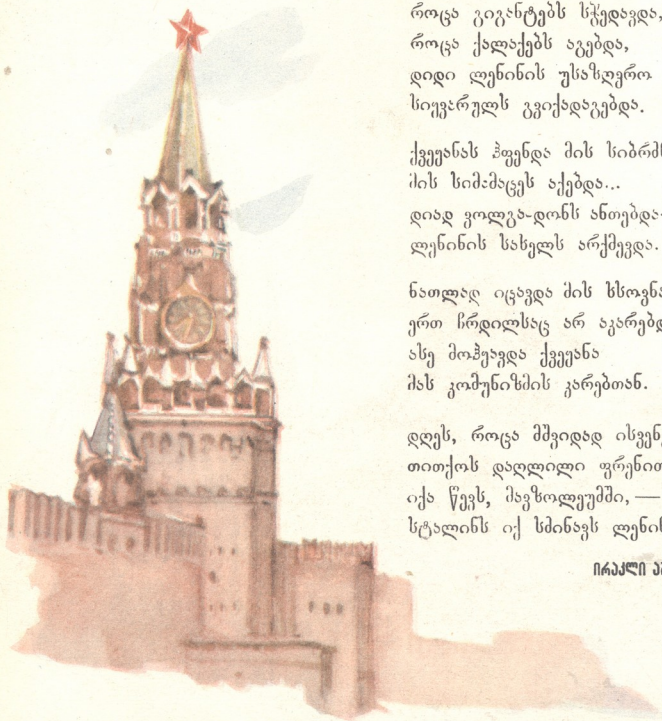 როცა გიგანტებს სჭედავდა,
როცა ქალაქებს აგებდა,
დიდი ლენინის უსაზღვრო
სიყვარულს გვიქადაგებდა.
ქვეყანას ჰფენდა მის
მის სიმამაცეს აქებდა...
დიად ვოლგა-დონს ანთებდა
ლენინის სახელს არქმევდა.
ნათლად იცავდა მის ხსოვნა
ერთ ჩრდილსაც არ
ასე მოჰყავდა ქვეყანა
მას კომუნიზმის კარებთან.
დღეს, როცა მშვიდად
თითქოს დაღლილი
იქა წევს, მავზოლეუმში, —
სტალინს იქ სძინავს
ირაკლი